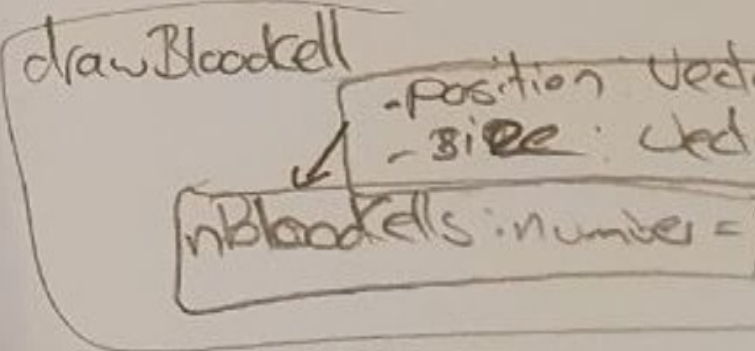 drawBloodcell
-position Vect
- size : Vect
nBloodCells : number =